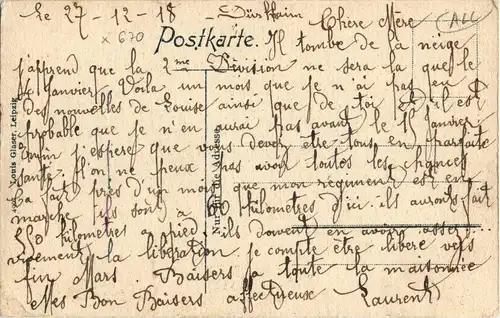 Le 27-12-18 - Dürkheim Chère Mère
x 670
(ALL
Postkarte. Il tombe de la neige
j'apprend que la 2me Division ne sera là que le
Janvier. Voilà un mois que je n'ai
des nouvelles de Louise ainsi que de toi. Il est
probable que je n'en aurai pas avant le 15 Janvier
Enfin j'espère que vous devez être tous en parfaite
santé. Il on ne peux pas avoir toutes les chances
Ca fait près d'un mois que mon régiment est en
marche, ils sont à 60 kilomètres d'ici. ils auront fait
kilomètres à pied, ils doivent en avoir assez
vivement la libération, je compte être libéré vers
fin Mars. Baisers à toute la maisonnée
Mes Bon Baisers affectueux Laurent
Nur für die Adresse
Louis Glaser, Leipzig